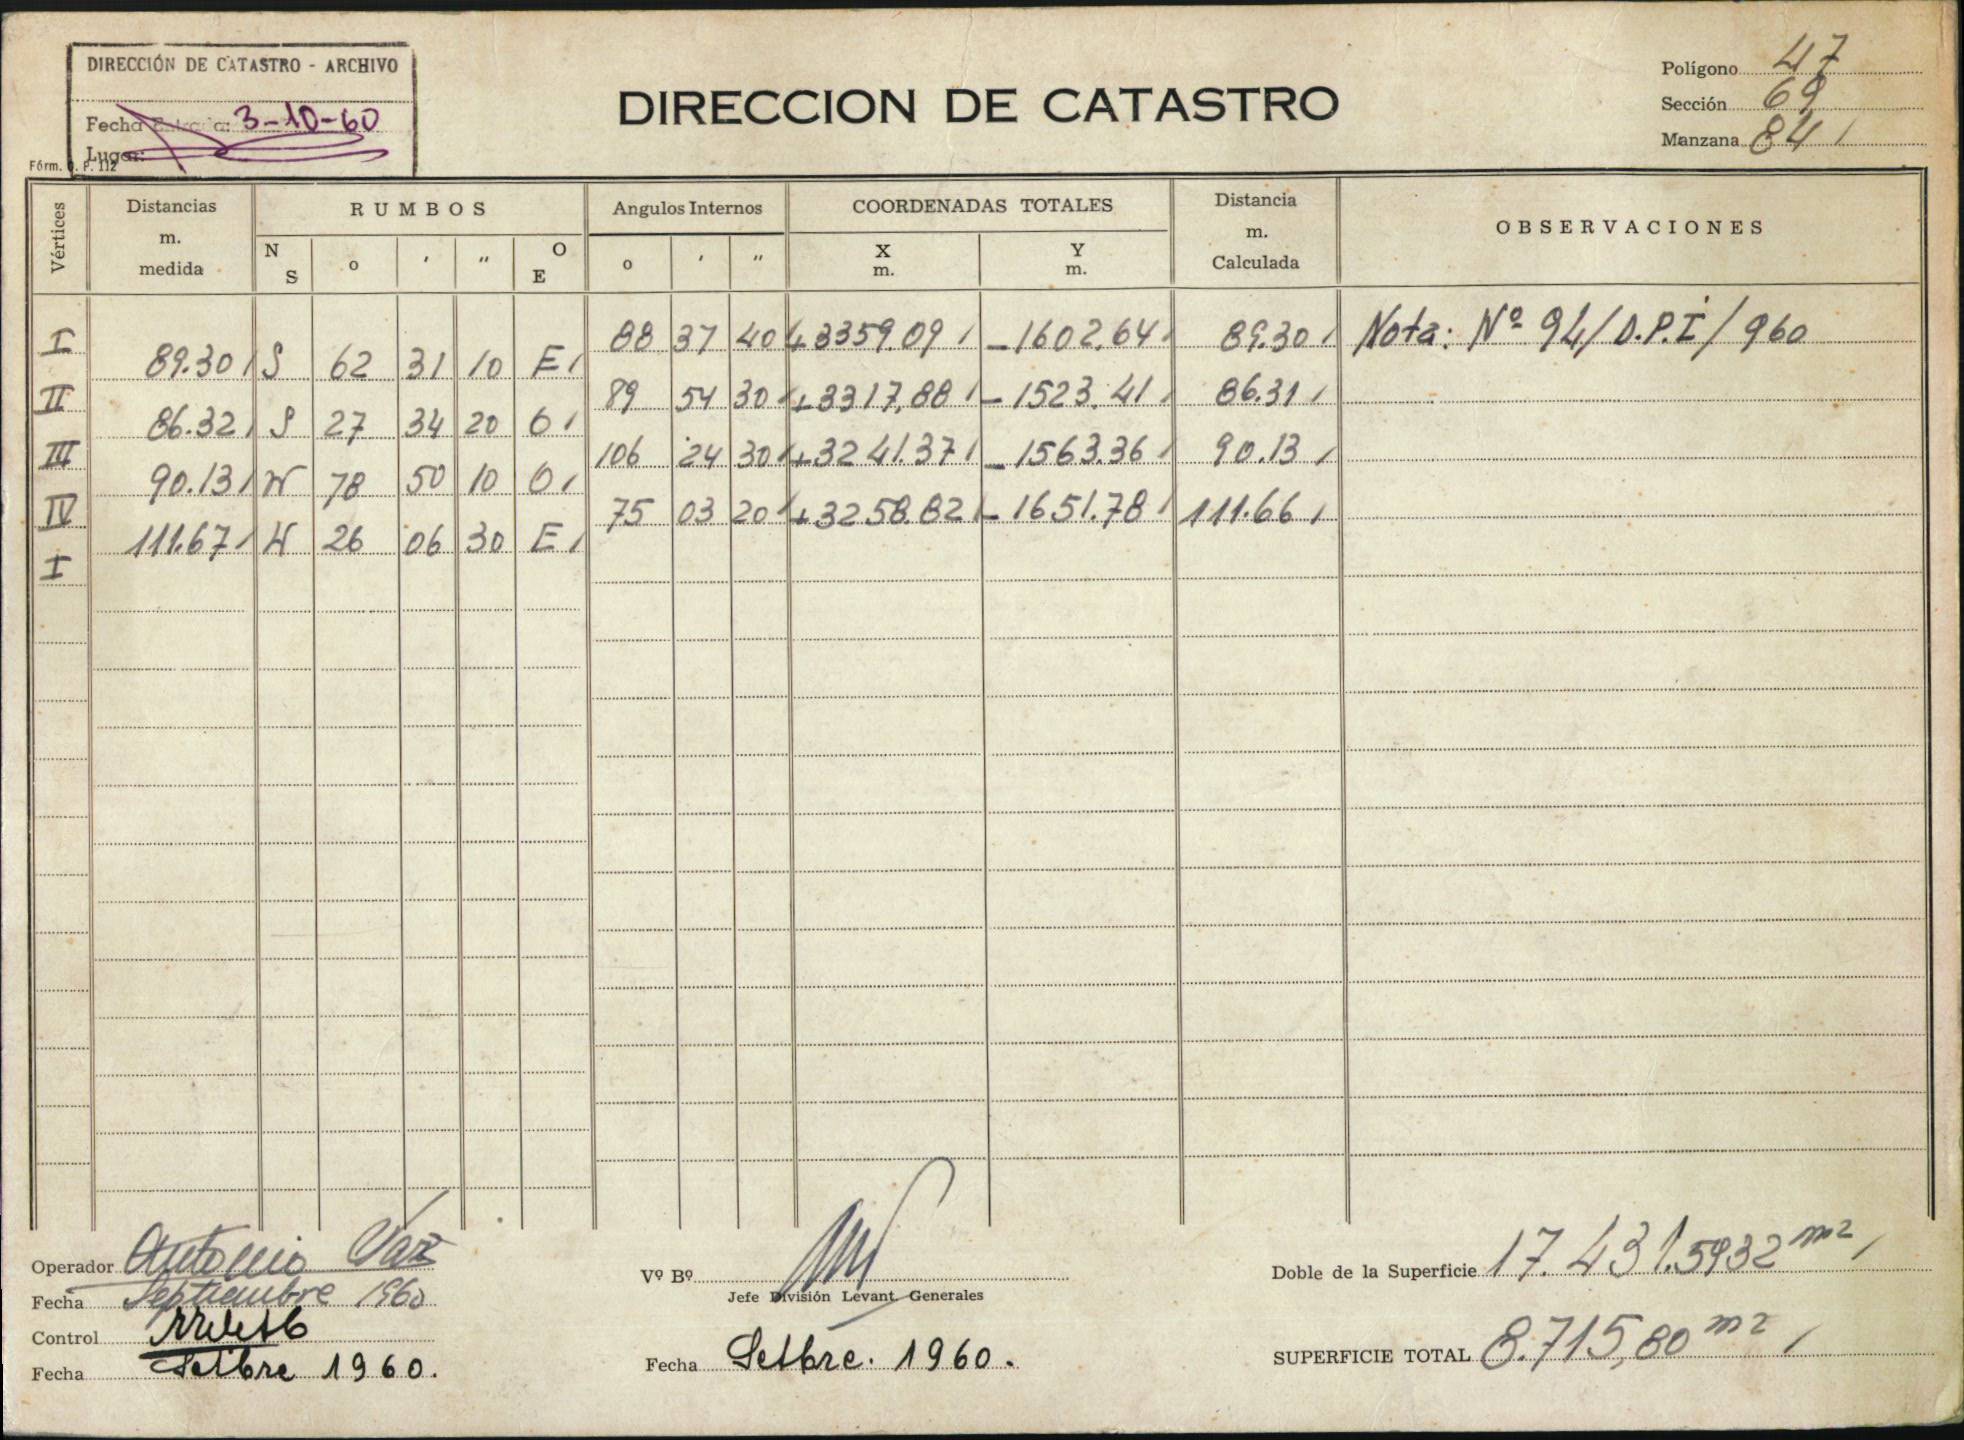 DIRECCIÓN DE CATASTRO - ARCHIVO
Fecha Entrada: 3-10-60
Lugar:
Fórm. O. P. 112
DIRECCION DE CATASTRO
Polígono 47
Sección 69
Manzana 841
Vértices Distancias m. medida RUMBOS Angulos Internos COORDENADAS TOTALES Distancia m. Calculada OBSERVACIONES
N S o ' " O E o ' " X m. Y m.
I 88 37 40 +3359.09 -1602.64 89.30 Nota: Nº 94/D.P.I/960
89.30 S 62 31 10 E
II 89 54 30 +3317.88 -1523.41 86.31
86.32 S 27 34 20 O
III 106 24 30 +3241.37 -1563.36 90.13
90.13 N 78 50 10 O
IV 75 03 20 +3258.82 -1651.78 111.66
111.67 N 26 06 30 E
I
Operador Antonio Vaz
Fecha Septiembre 1960
Control
Fecha Setbre 1960.
Vº Bº
Jefe División Levant Generales
Fecha Setbre. 1960.
Doble de la Superficie 17.431.5932 m²
SUPERFICIE TOTAL 8.715,80 m²